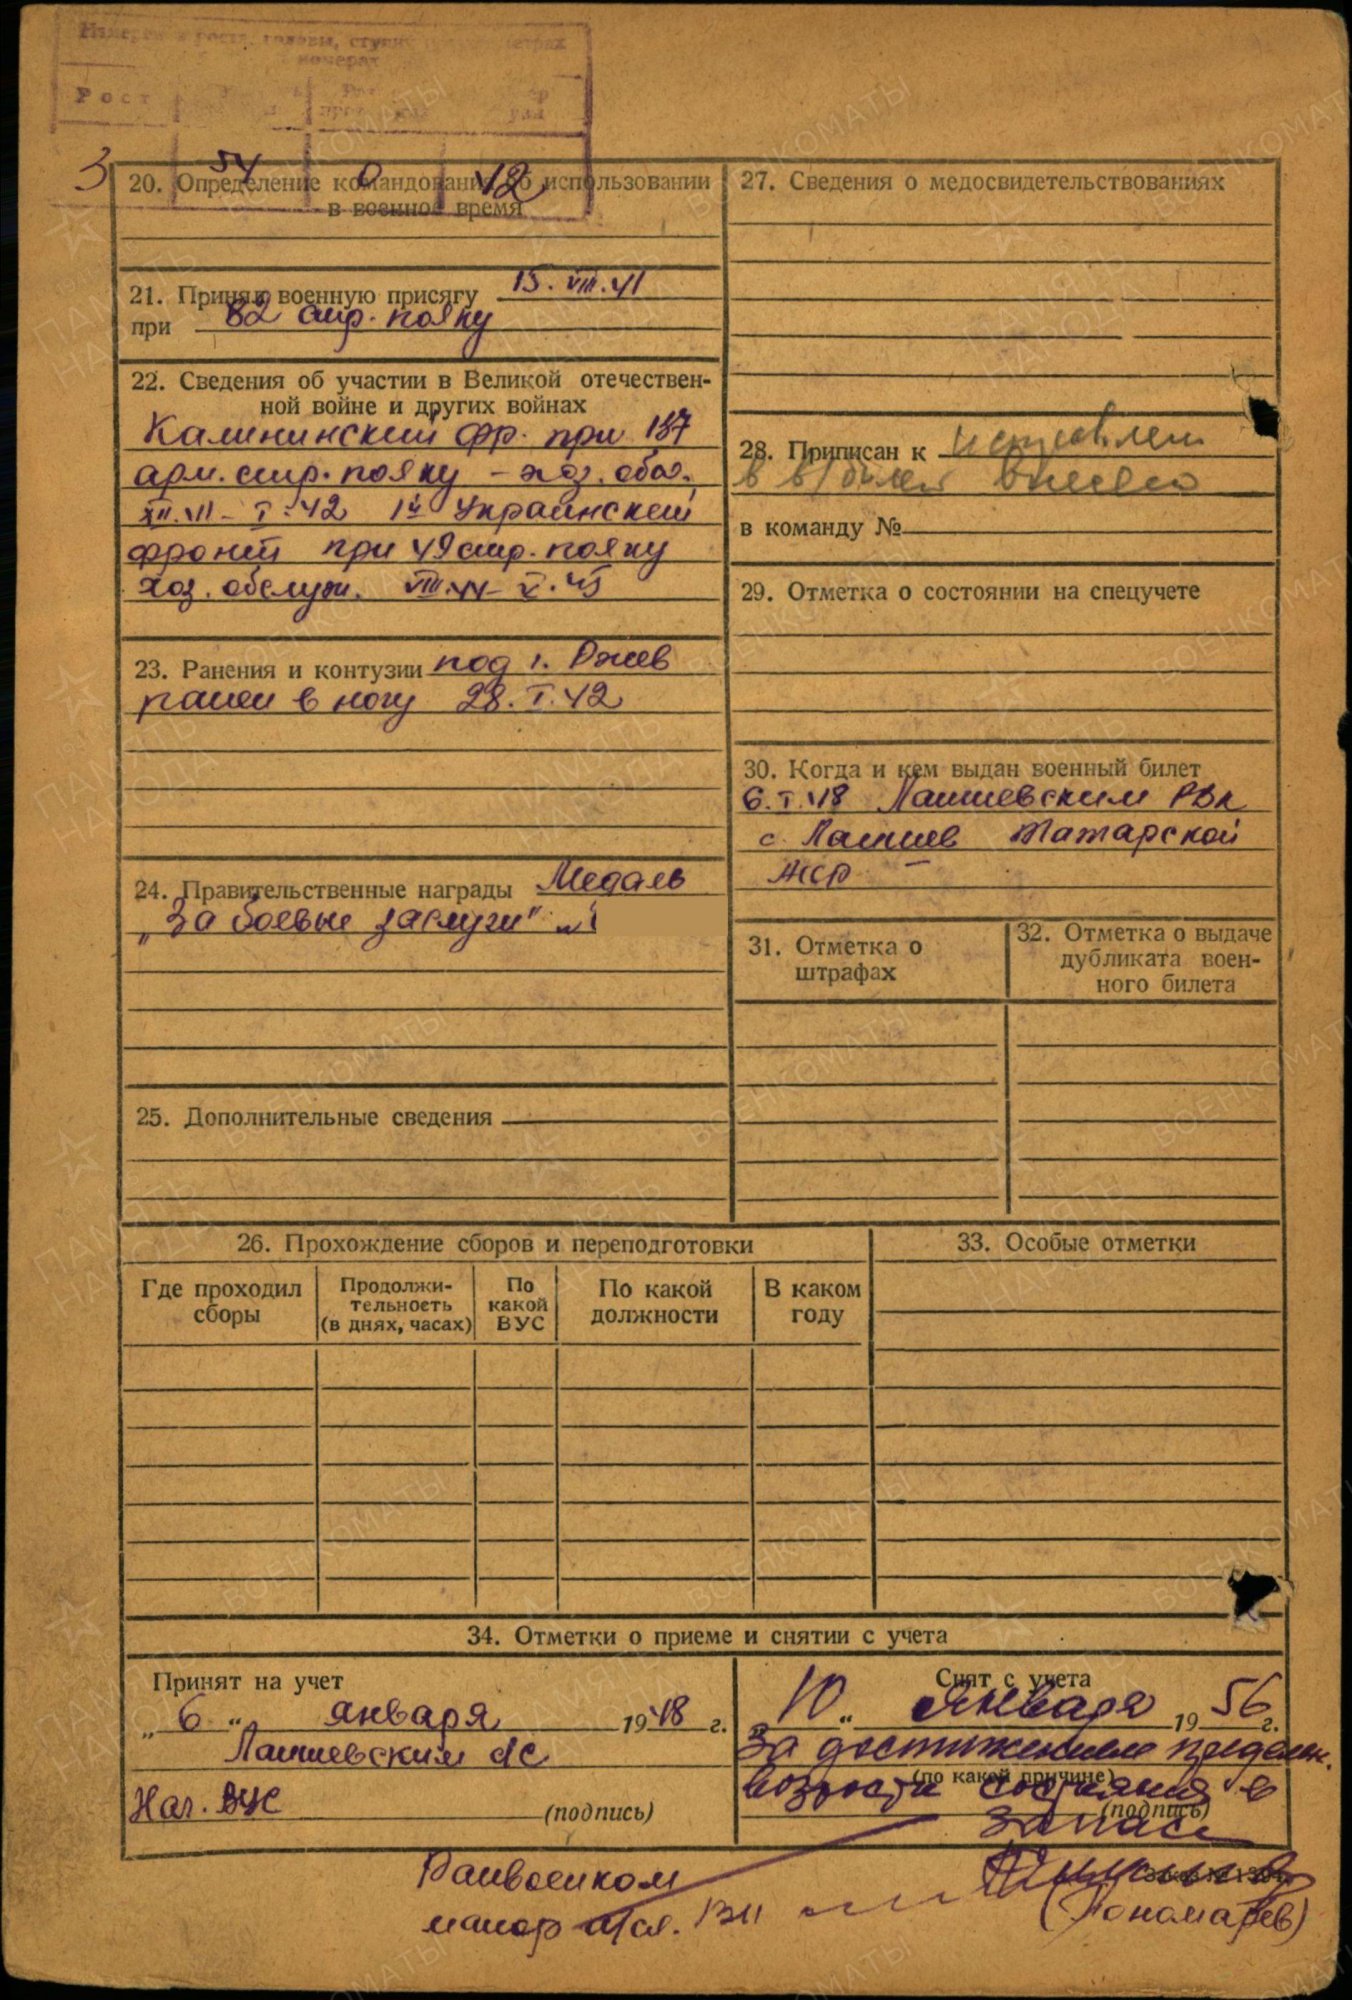 Рост
3 54 0 42
20. Определение командования об использовании
в военное время
21. Принял военную присягу 15.VIII.41
при 82 стр. полку
22. Сведения об участии в Великой отечествен-
ной войне и других войнах
Калининский фр. при 137
арм. стр. полку – хоз. обсл.
XII.41 – I.42 1й Украинский
фронт при 49 стр. полку
хоз. обслуж. VIII.44 – V.45
23. Ранения и контузии под г. Ржев
ранен в ногу 28.I.42
24. Правительственные награды Медаль
„За боевые заслуги"
25. Дополнительные сведения
27. Сведения о медосвидетельствованиях
28. Приписан к
в в/билет внесено
в команду №
29. Отметка о состоянии на спецучете
30. Когда и кем выдан военный билет
6.I.48 Лаишевским РВК
с. Лаишев Татарской
АССР
31. Отметка о
штрафах
32. Отметка о выдаче
дубликата воен-
ного билета
26. Прохождение сборов и переподготовки
Где проходил
сборы
Продолжи-
тельность
(в днях, часах)
По
какой
ВУС
По какой
должности
В каком
году
33. Особые отметки
34. Отметки о приеме и снятии с учета
Принят на учет
„ 6 " января 1948 г.
Лаишевским
Нач. ВУС (подпись)
Снят с учета
„ 10 " января 1956 г.
За достижением пределн.
(по какой причине)
возраста состояния в
(подпись)
запасе
Райвоенком
майор
(Пономарев)
ПАМЯТЬ
НАРОДА
ВОЕНКОМАТЫ